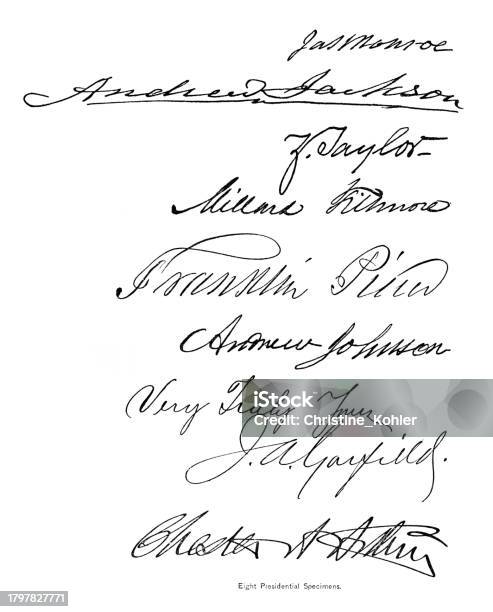 Jas Monroe
Andrew Jackson
Z. Taylor
Millard Fillmore
Franklin Pierce
Andrew Johnson
Very Truly Yours
iStock
Credit: Christine_Kohler
J. A. Garfield.
Chester A Arthur
Eight Presidential Specimens.
1797827771